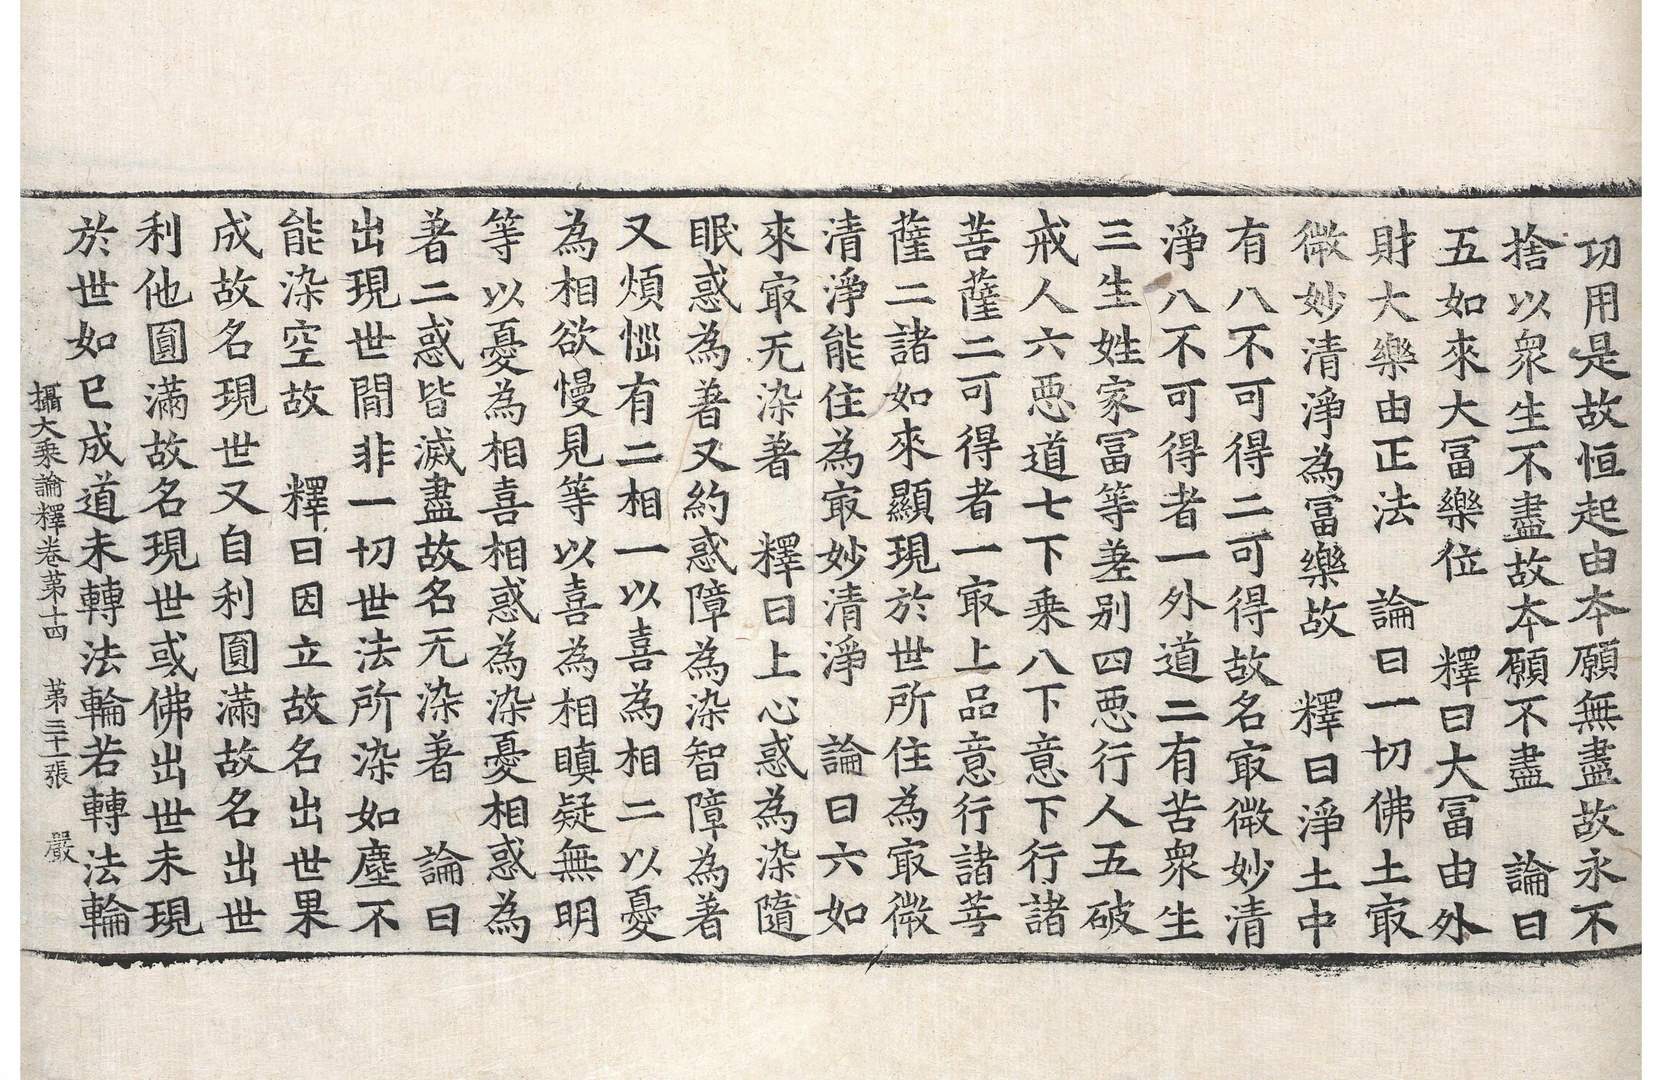 功用是故恒起由本願無盡故永不
捨以衆生不盡故本願不盡　論曰
五如來大冨樂位　釋曰大冨由外
財大樂由正法　論曰一切佛土㝡
微妙清淨為冨樂故　釋曰淨土中
有八不可得二可得故名㝡微妙清
淨八不可得者一外道二有苦衆生
三生姓家冨等差别四惡行人五破
戒人六惡道七下乗八下意下行諸
菩薩二可得者一㝡上品意行諸菩
薩二諸如來顯現於世所住為㝡微
清淨能住為㝡妙清淨　論曰六如
來㝡无染著　釋曰上心惑為染隨
眠惑為著又約惑障為染智障為著
又煩惱有二相一以喜為相二以憂
為相欲慢見等以喜為相瞋疑無明
等以憂為相喜相惑為染憂相惑為
著二惑皆滅盡故名无染著　論曰
出現世間非一切世法所染如塵不
能染空故　釋曰因立故名出世果
成故名現世又自利圓滿故名出世
利他圓滿故名現世或佛出世未現
於世如已成道未轉法輪若轉法輪
攝大乘論釋卷第十四　第三十一張　嚴